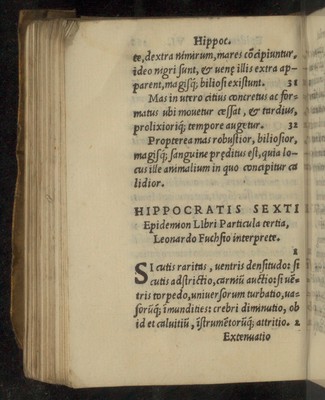 Hippoc.
te, dextra nimirum, mares cōcipiuntur,
ideo nigri sunt, & uenę illis extra ap-
parent, magisq́;, biliosi existunt. 31
Mas in utero citius concretus ac for-
matus ubi mouetur cessat, & tardius,
prolixioriq́; tempore augetur. 32
Propterea mas robustior, biliosior,
magisq́; sanguine pręditus est, quia lo-
cus ille animalium in quo concipitur ca
lidior.
HIPPOCRATIS SEXTI
Epidemion Libri Particula tertia,
Leonardo Fuchsio interprete.
1
SI cutis raritas, uentris densitudo: si
cutis adstrictio, carniũ auctio: si uē-
tris torpedo, uniuersorum turbatio, ua-
sorũq́; ĩmundities: crebri diminutio, ob
id et caluitiũ, ĩstrumētorũq́; attritio. 2
Extenuatio